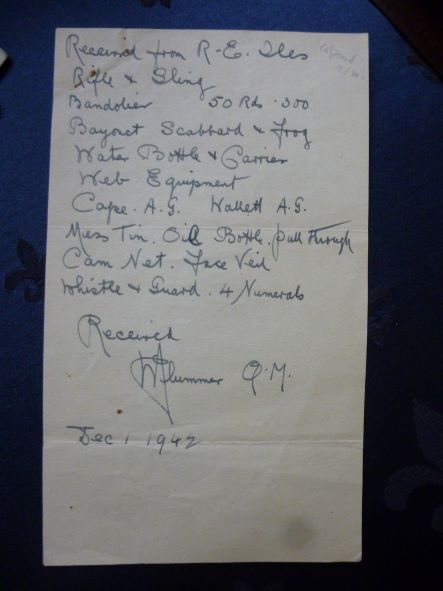 Received from R-E. Iles
Rifle & Sling
Bandolier 50 Rds .300
Bayonet Scabbard & Frog
Water Bottle & Carrier
Web Equipment
Cape. A.G. Wallett A.G.
Mess Tin. Oil Bottle. pull through
Cam Net. Face Veil
Whistle & Guard. 4 Numerals
Received
W Plummer Q.M.
Dec 1 1942